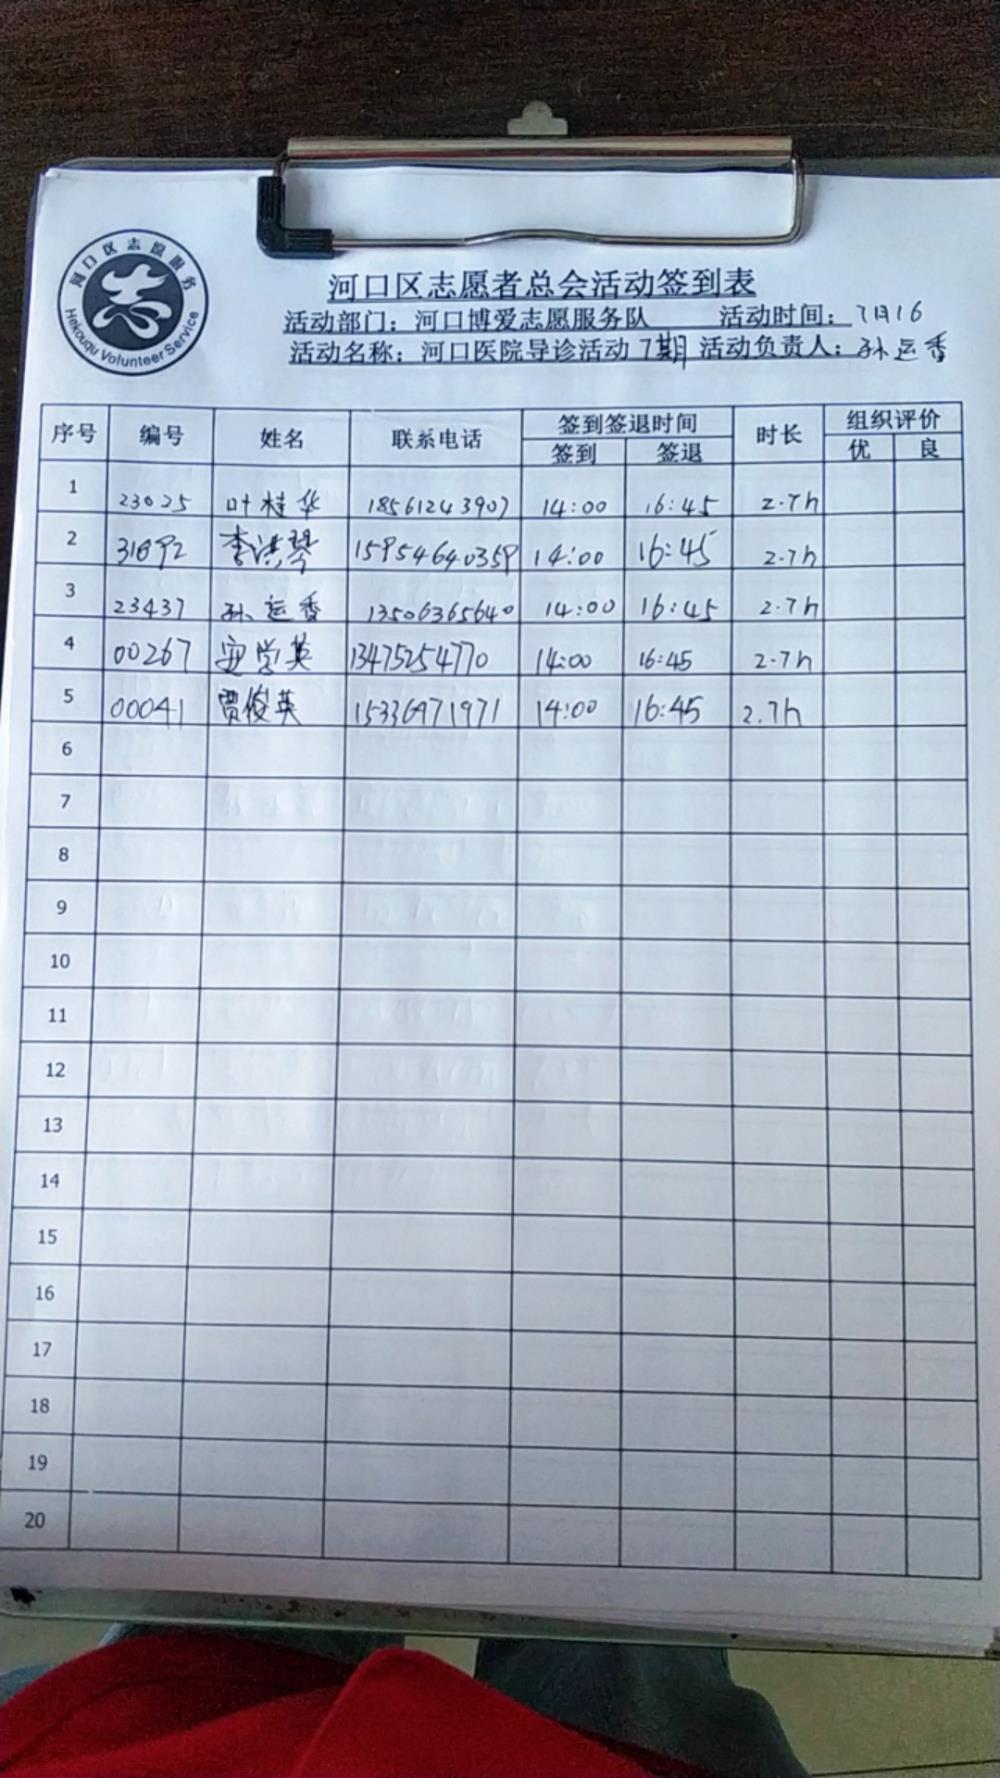 河口区志愿服务
Hekouqu Volunteer Service
河口区志愿者总会活动签到表
活动部门：河口博爱志愿服务队 活动时间：7月16
活动名称：河口医院导诊活动7期 活动负责人：孙运香
序号 编号 姓名 联系电话 签到签退时间 时长 组织评价
签到 签退 优 良
1 23025 叶桂华 18561243907 14:00 16:45 2.7h
2 31892 李洪琴 15954640359 14:00 16:45 2.7h
3 23437 孙运香 13506365640 14:00 16:45 2.7h
4 00267 安学英 13475254770 14:00 16:45 2.7h
5 00041 贾俊英 15336471971 14:00 16:45 2.7h
6
7
8
9
10
11
12
13
14
15
16
17
18
19
20